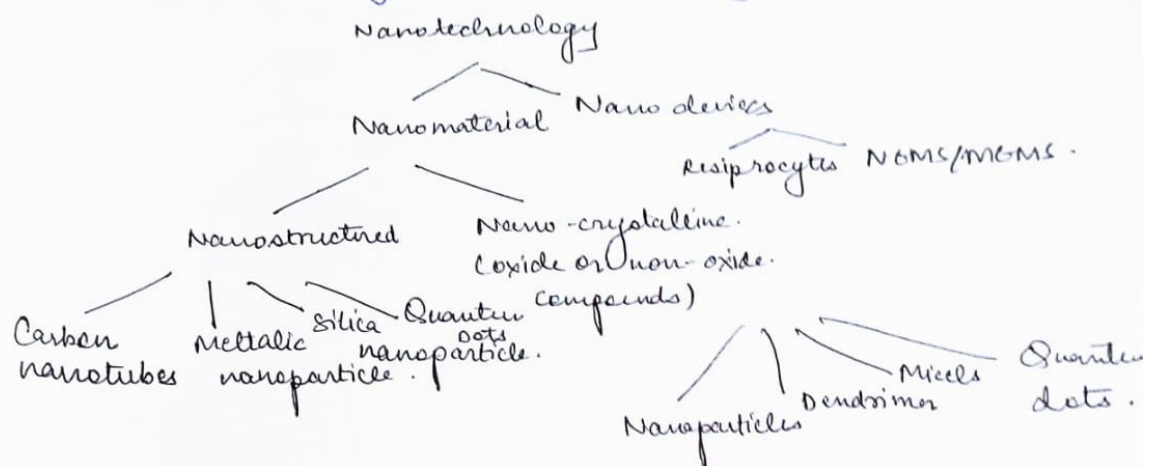 Nanotechnology
Nanomaterial Nano devices
Resiprocytes NEMS/MEMS.
Nanostructured Nano-crystalline.
(oxide or non-oxide.
compounds)
Carbon
nanotubes
Mettalic
nanoparticle.
Silica
nanoparticle.
Quantum
Dots
Nanoparticles
Dendrimer
Micels
Quantu
dots.